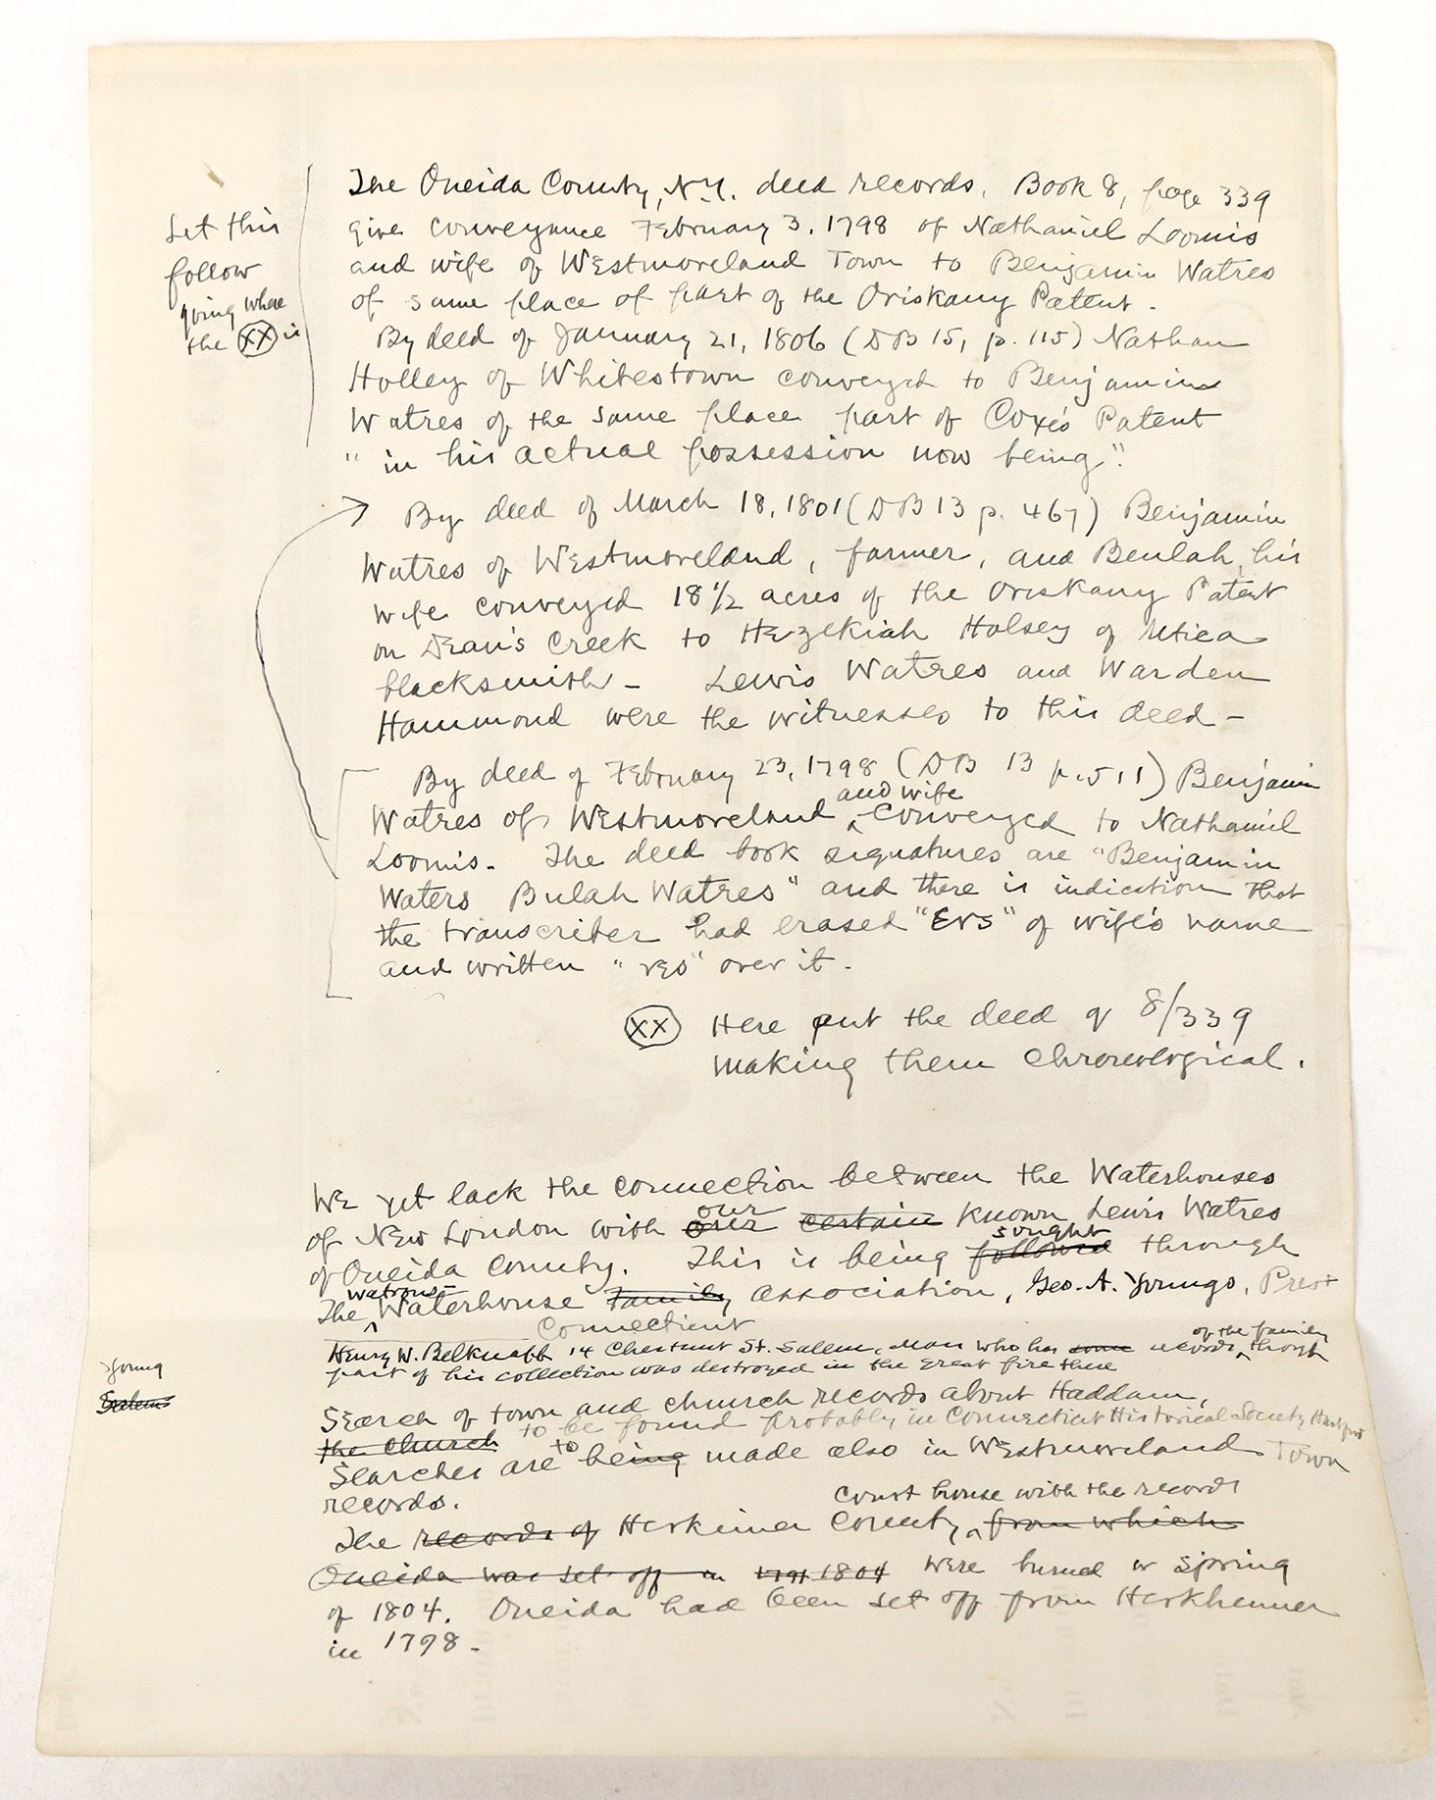 The Oneida County, N.Y. deed records. Book 8, page 339
give conveyance February 3, 1798 of Nathaniel Loomis
and wife of Westmoreland Town to Benjamin Watres
of same place of part of the Oriskany Patent.
Let this
follow
going where
the XX is
By deed of January 21, 1806 (DB 15, p. 115) Nathan
Holley of Whitestown conveyed to Benjamin
Watres of the same place part of Coxe's Patent
"in his actual possession now being".
By deed of March 18, 1801 (DB 13 p. 467) Benjamin
Watres of Westmoreland, farmer, and Beulah, his
wife conveyed 18 1/2 acres of the Oriskany Patent
on Dean's Creek to Hezekiah Halsey of Utica
blacksmith - Lewis Watres and Warden
Hammond were the witnesses to this deed -
By deed of February 23, 1798 (DB 13 p. 511) Benjamin
and wife
Watres of Westmoreland ^ conveyed to Nathaniel
Loomis. The deed book signatures are "Benjamin
Waters Bulah Watres" and there is indication that
the transcriber had erased "ers" of wife's name
and written "res" over it.
XX Here put the deed of 8/339
making them chronological.
We yet lack the connection between the Waterhouses
our
of New London with our certain known Lewis Watres
sought
of Oneida County. This is being followed through
Watrous
The ^ Waterhouse Family Association, Geo. A. Youngs, Prest
Connecticut
Henry W. Belknapp 14 Chestnut St. Salem, Mass who has some records ^ though
of the family
part of his collection was destroyed in the great fire there
Young
Salem
Search of town and church records about Haddam,
the Church to be found probably in Connecticut Historical Society Hartford
Searches are to being made also in Westmoreland Town
records.
court house with the records
The records of Herkimer County, ^ from which
Oneida was set off in 1804 were burned in spring
of 1804. Oneida had been set off from Herkheimer
in 1798 -